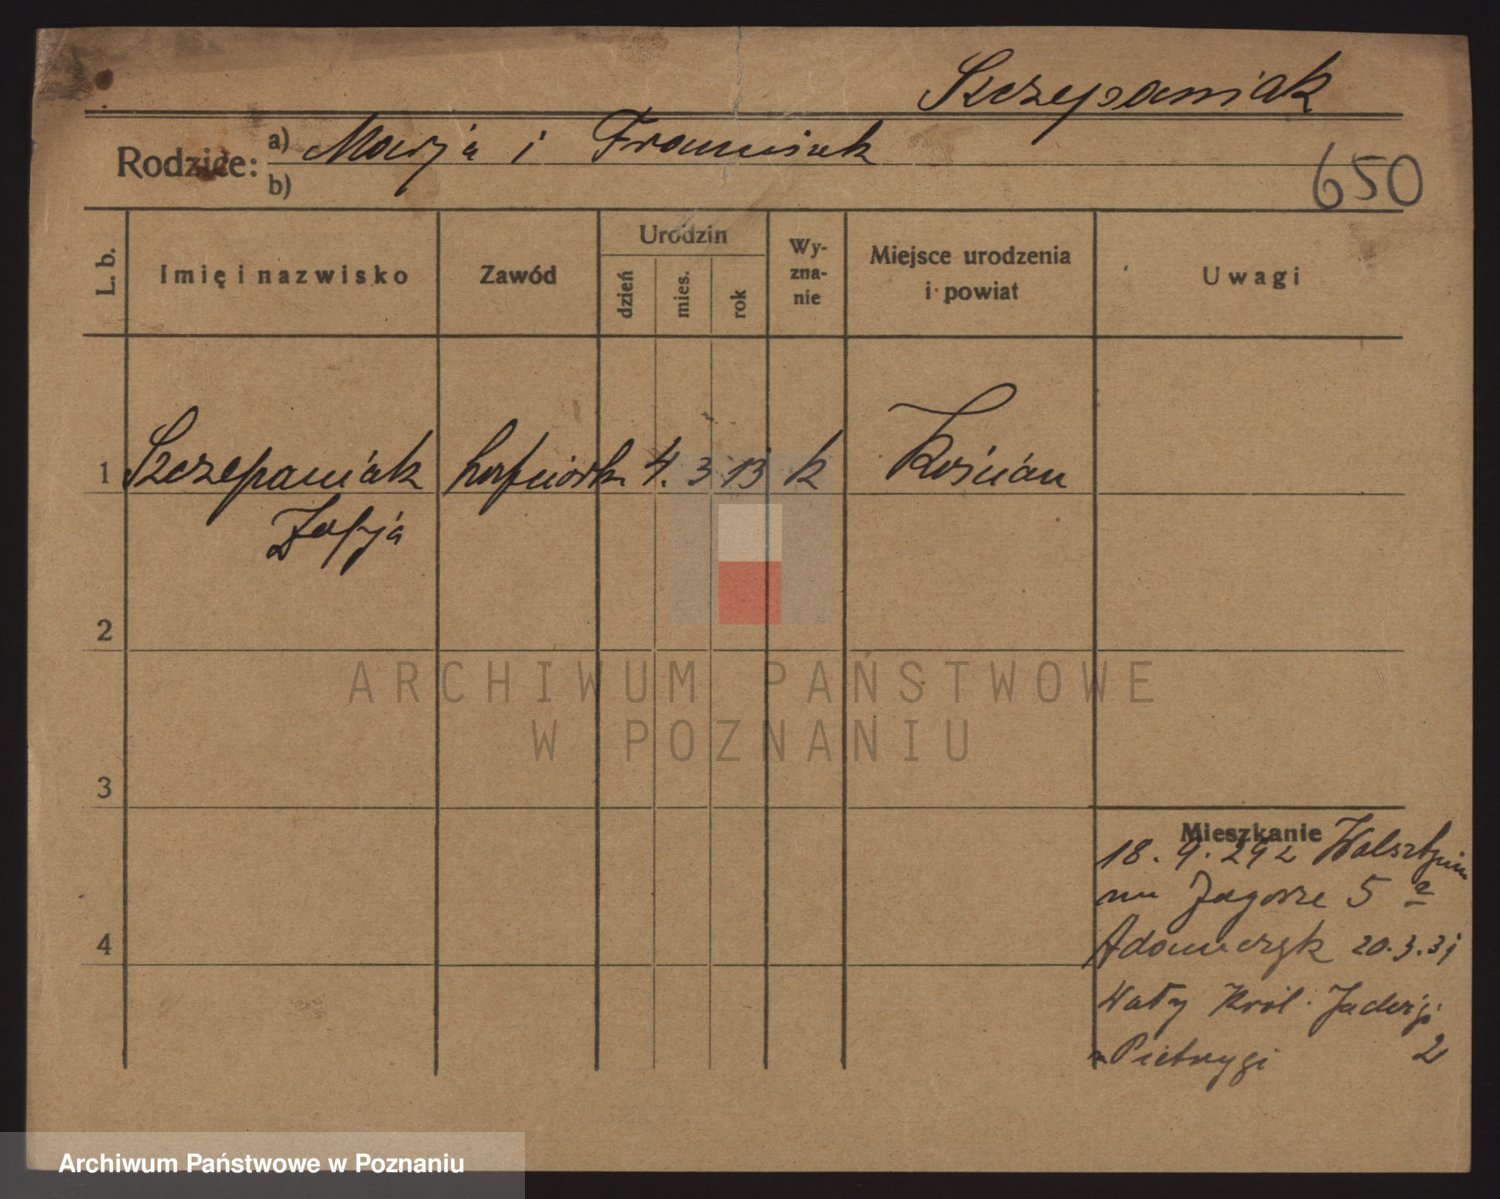 Szczepaniak
Rodzice: a) Marja i Franciszek
b)
650
L. b.
Imię i nazwisko
Zawód
Urodzin
dzień
mies.
rok
Wy-
zna-
nie
Miejsce urodzenia
i powiat
Uwagi
1 Szczepaniak 4. 3 13 k Kościan
Zofja
2
3
4
Mieszkanie
18. 9. 29 z
Zagorze 5
Adamczyk 20.3.31
Wały Król. Jadwigi
2
ARCHIWUM PAŃSTWOWE
W POZNANIU
Archiwum Państwowe w Poznaniu